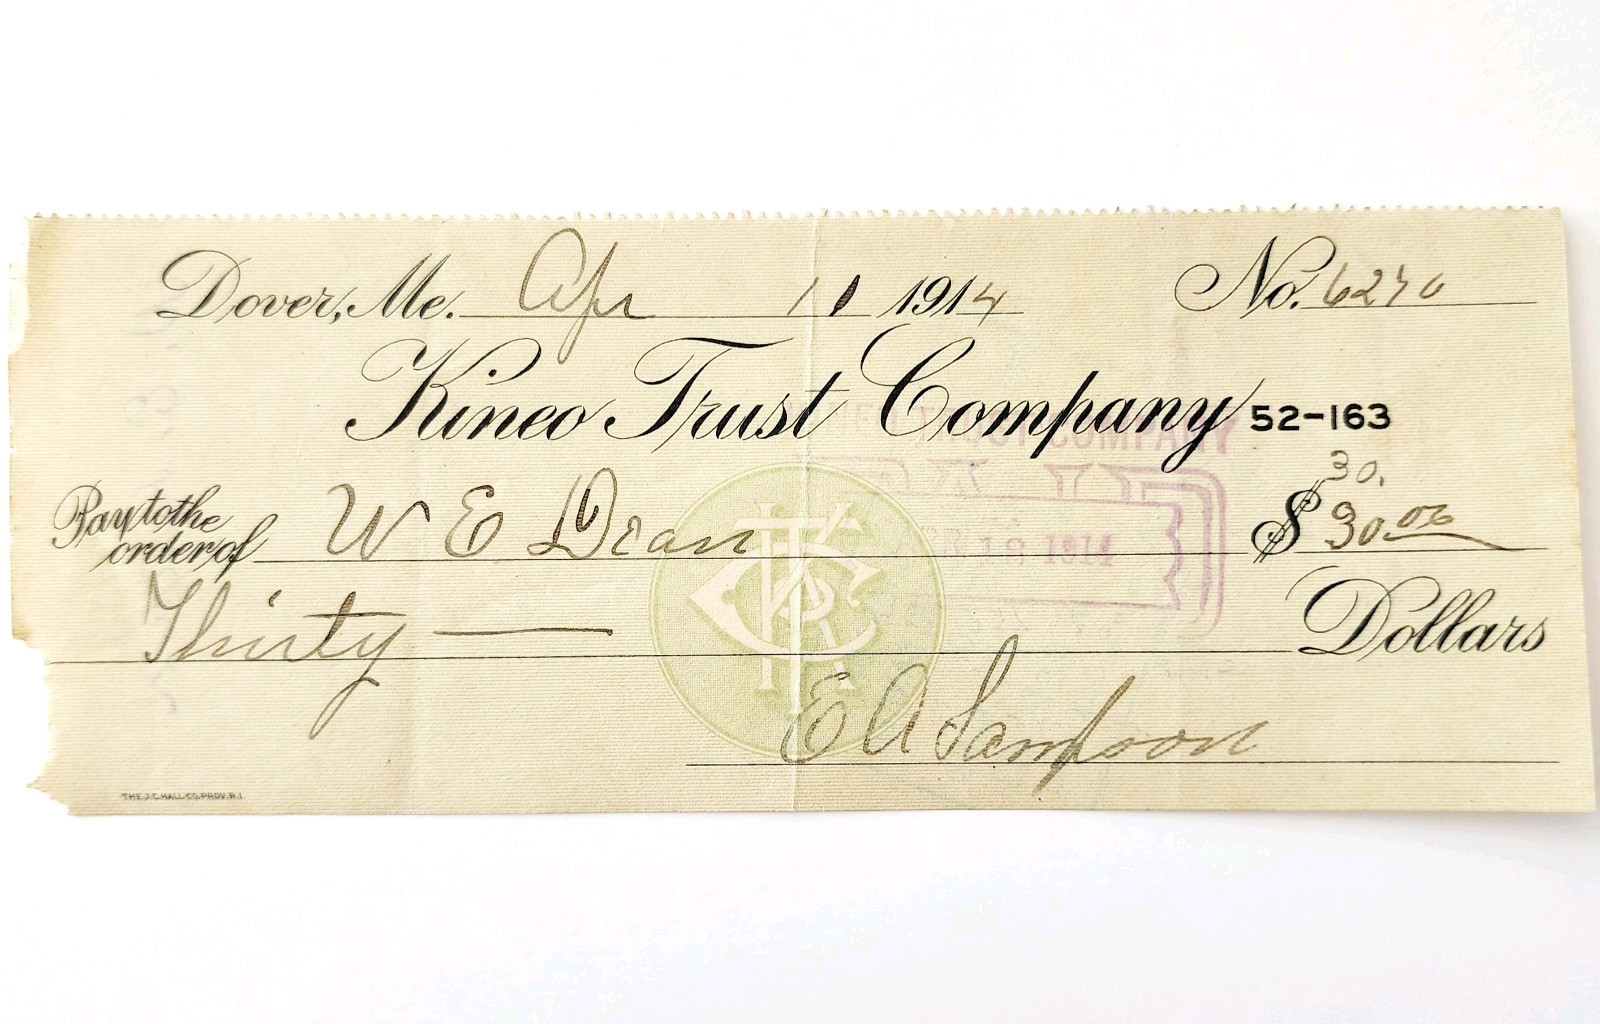 Dover, Me. Apr 11 1914 No. 6270
Kineo Trust Company 52-163
30.
Pay to the order of W E Dean $ 30.00
Thirty Dollars
E A Sampson
TRUST COMPANY
PAID
APR 18 1914
THE J.C. HALL CO. PROV. R.I.